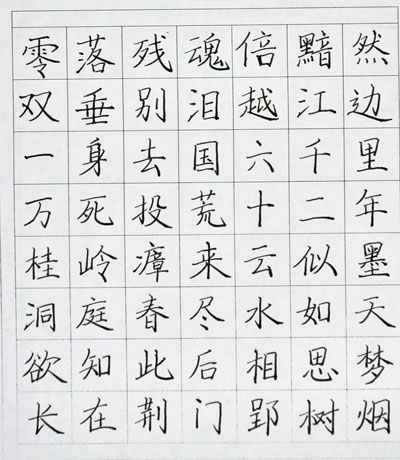 零落残魂倍黯然
双垂别泪越江边
一身去国六千里
万死投荒十二年
桂岭瘴来云似墨
洞庭春尽水如天
欲知此后相思梦
长在荆门郢树烟